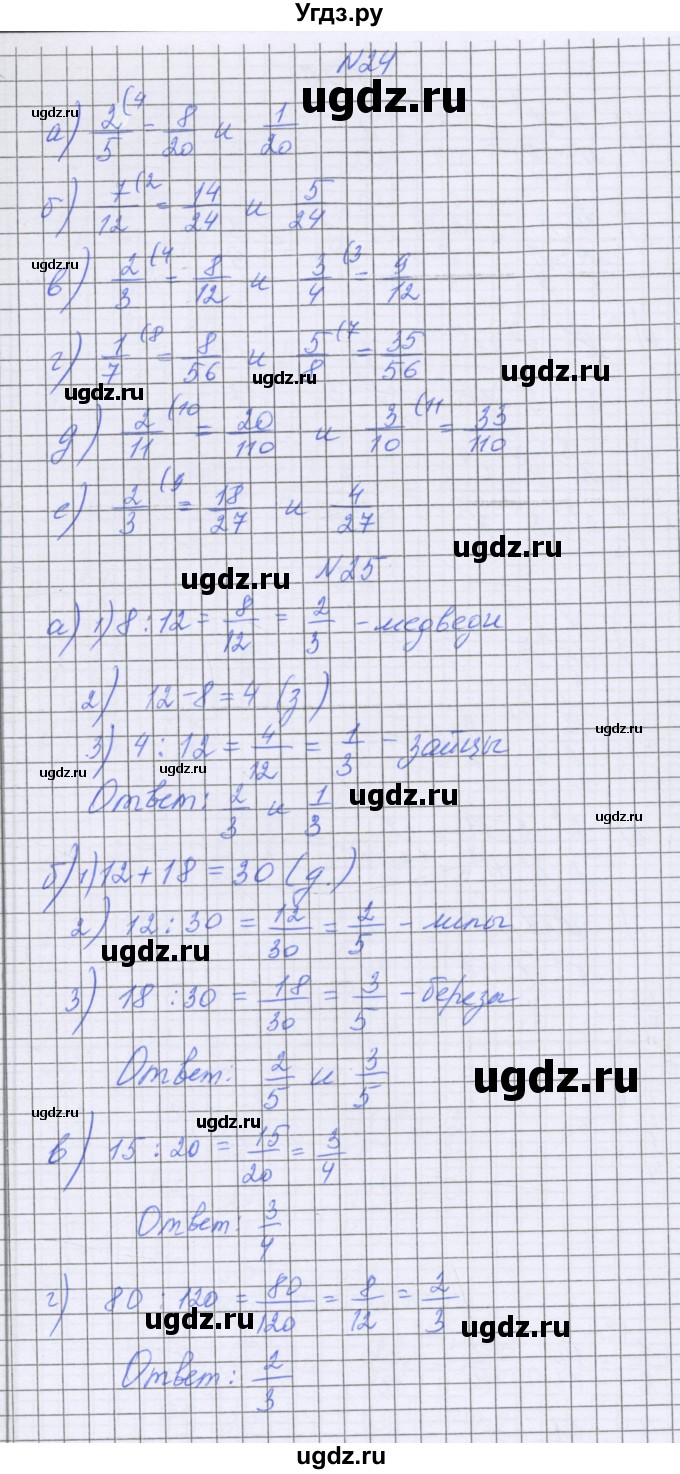 Угдз.ру
№24
ugdz.ru
ugdz.ru
а) 2/5 (4 = 8/20 и 1/20
б) 7/12 (2 = 14/24 и 5/24
ugdz.ru
в) 2/3 (4 = 8/12 и 3/4 (3 = 9/12
г) 1/7 (8 = 8/56 и 5/8 (7 = 35/56
ugdz.ru ugdz.ru ugdz.ru
д) 2/11 (10 = 20/110 и 3/10 (11 = 33/110
е) 2/3 (9 = 18/27 и 4/27
ugdz.ru
№25
ugdz.ru
а) 1) 8 : 12 = 8/12 = 2/3 - медведи
2) 12 - 8 = 4 (з)
ugdz.ru
3) 4 : 12 = 4/12 = 1/3 - зайцы
ugdz.ru ugdz.ru
Ответ: 2/3 и 1/3
ugdz.ru ugdz.ru
б) 1) 12 + 18 = 30 (д.)
2) 12 : 30 = 12/30 = 2/5 - липы
ugdz.ru
3) 18 : 30 = 18/30 = 3/5 - березы
Ответ: 2/5 и 3/5
ugdz.ru
ugdz.ru ugdz.ru
в) 15 : 20 = 15/20 = 3/4
Ответ: 3/4
г) 80 : 120 = 80/120 = 8/12 = 2/3
ugdz.ru ugdz.ru
Ответ: 2/3
ugdz.ru